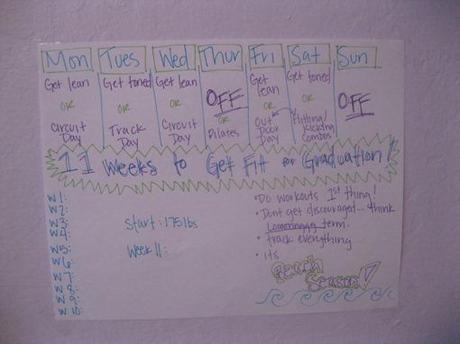 Mon Tues Wed Thur Fri Sat Sun
Get lean
OR
Circuit
Day
Get toned
OR
Track
Day
Get lean
OR
Circuit
Day
OFF
OR
Pilates
Get
lean
OR
Out
Door
Day
Get toned
OR
Hitting/
Kicking
Combos
OFF
11 Weeks to Get Fit for Graduation!
W1:
W2:
W3:
W4:
W5:
W6:
W7:
W8:
W9:
W10:
Start: 175lbs
Week 11:
• Do workouts 1st thing!
• Dont get discouraged... think
term.
• track everything
• its
Beach
Season!